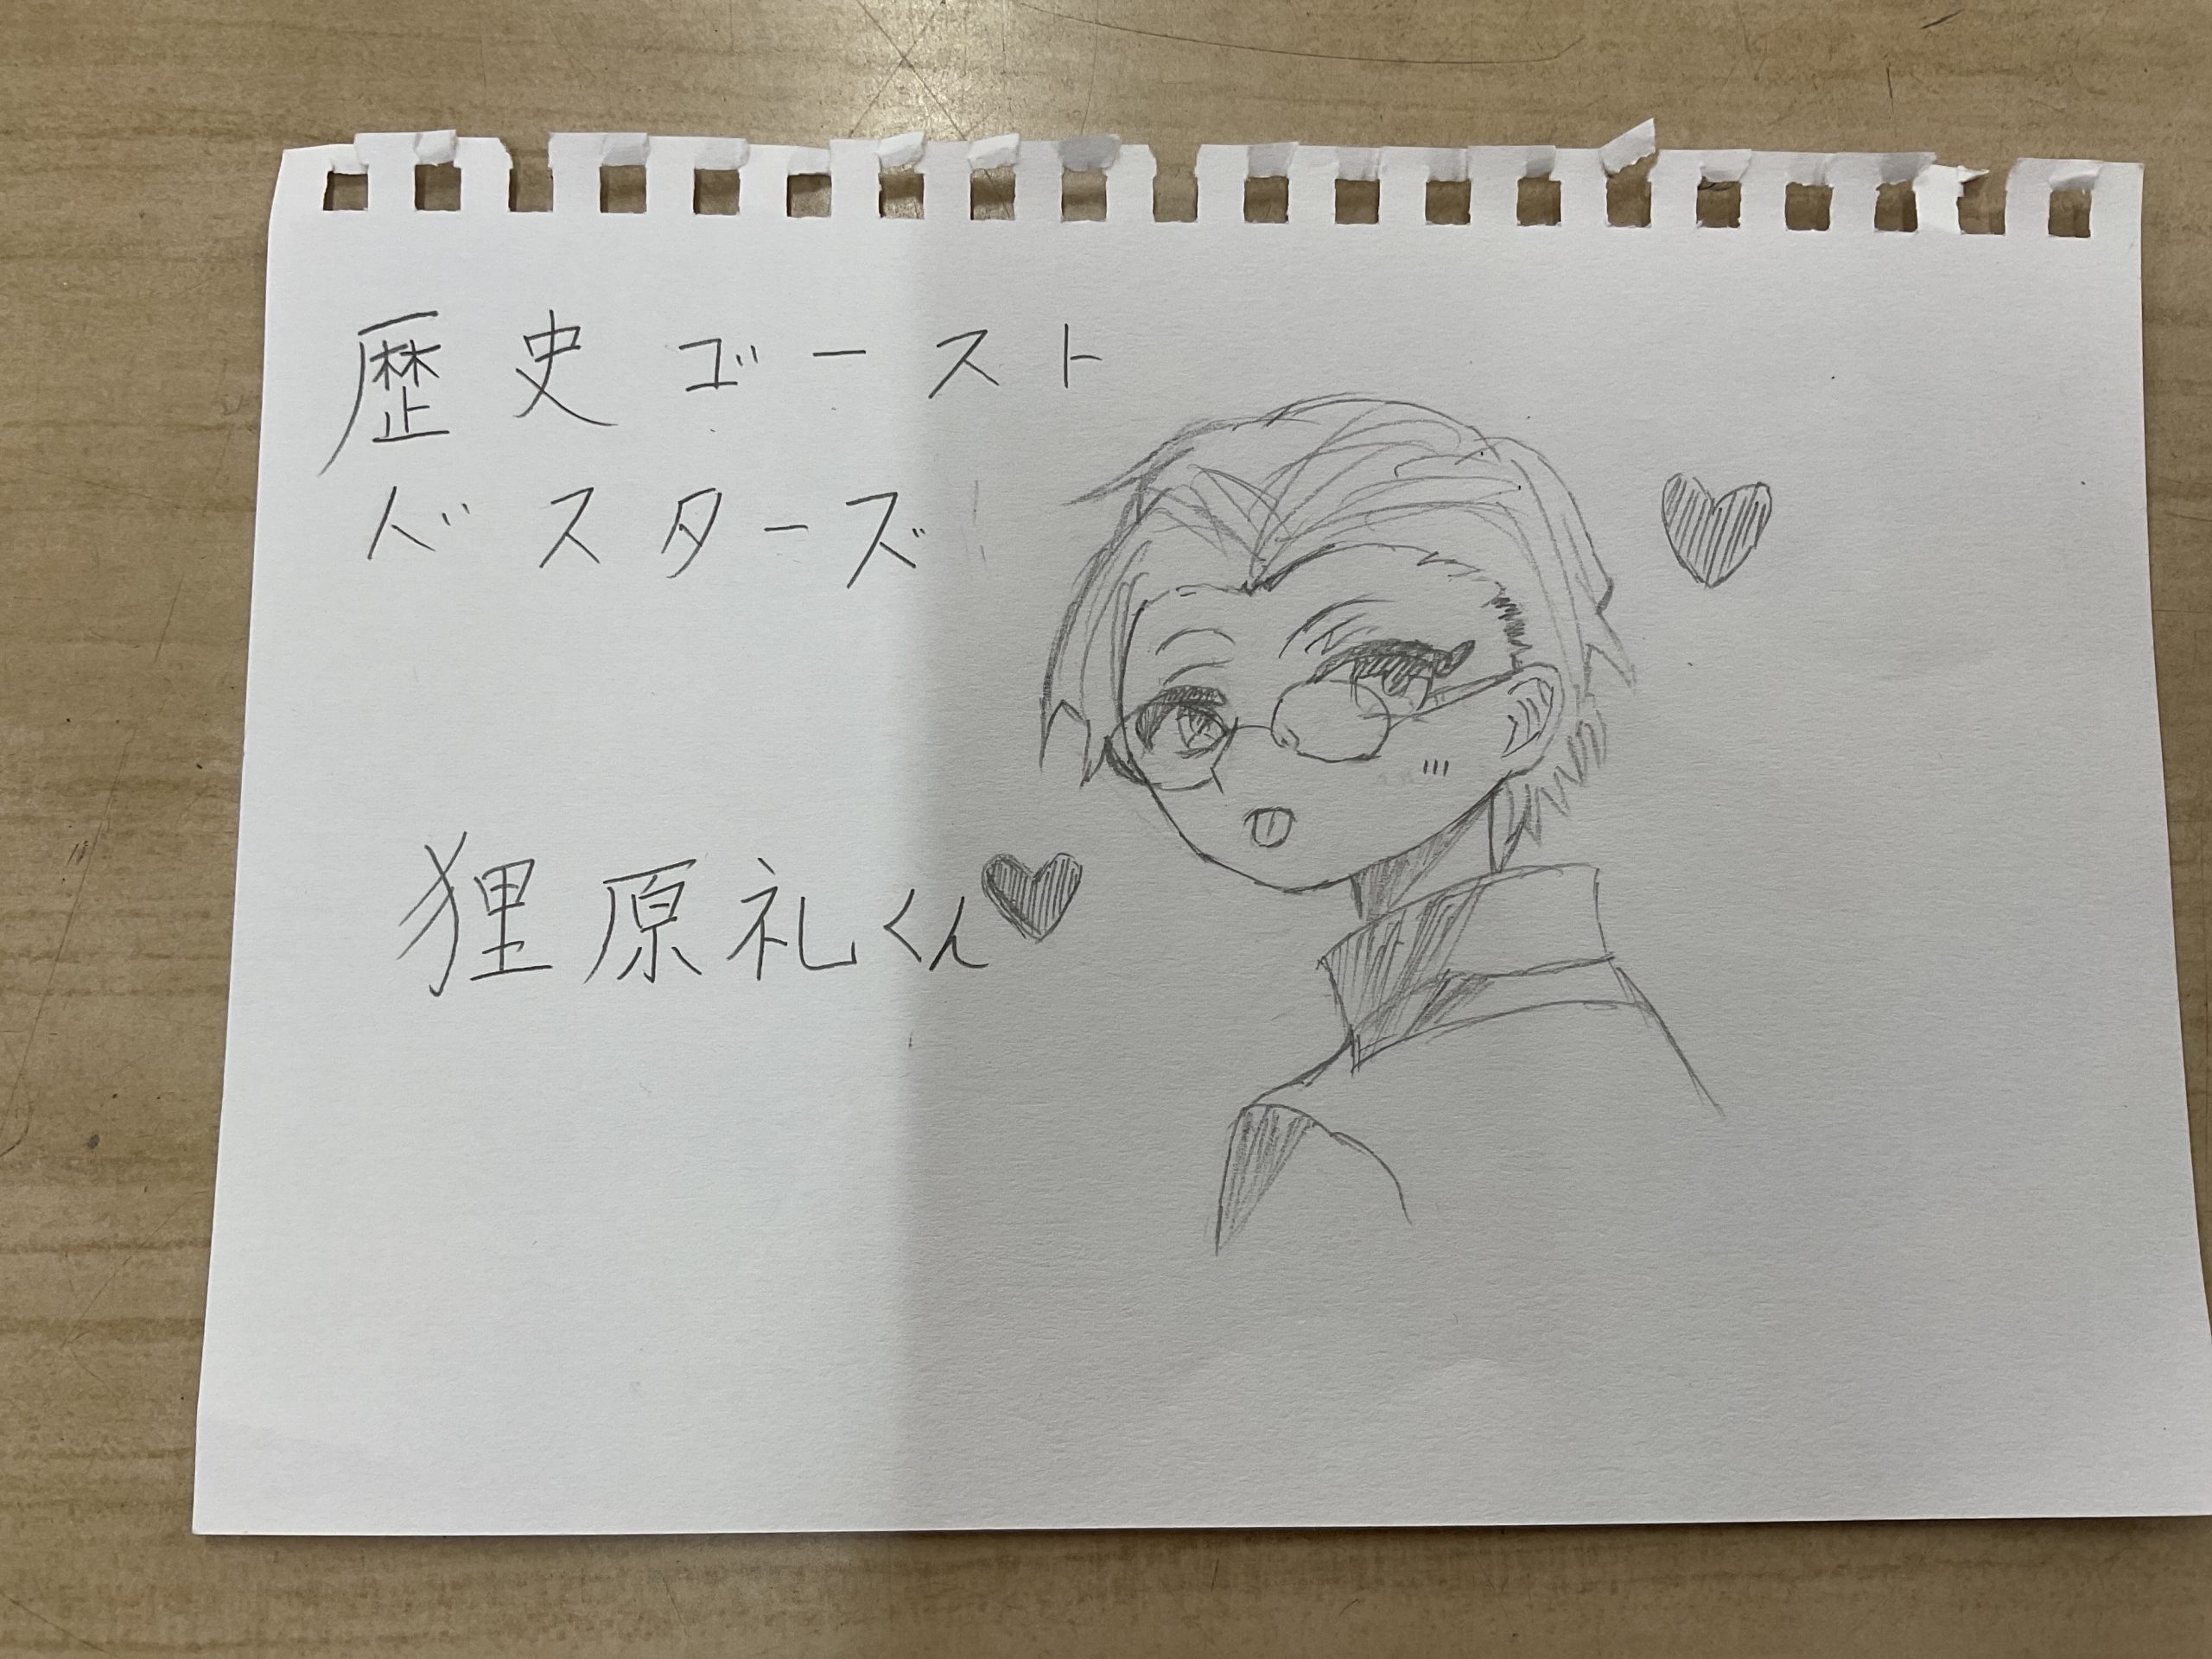 歴史ゴースト
バスターズ
狸原礼くん♥